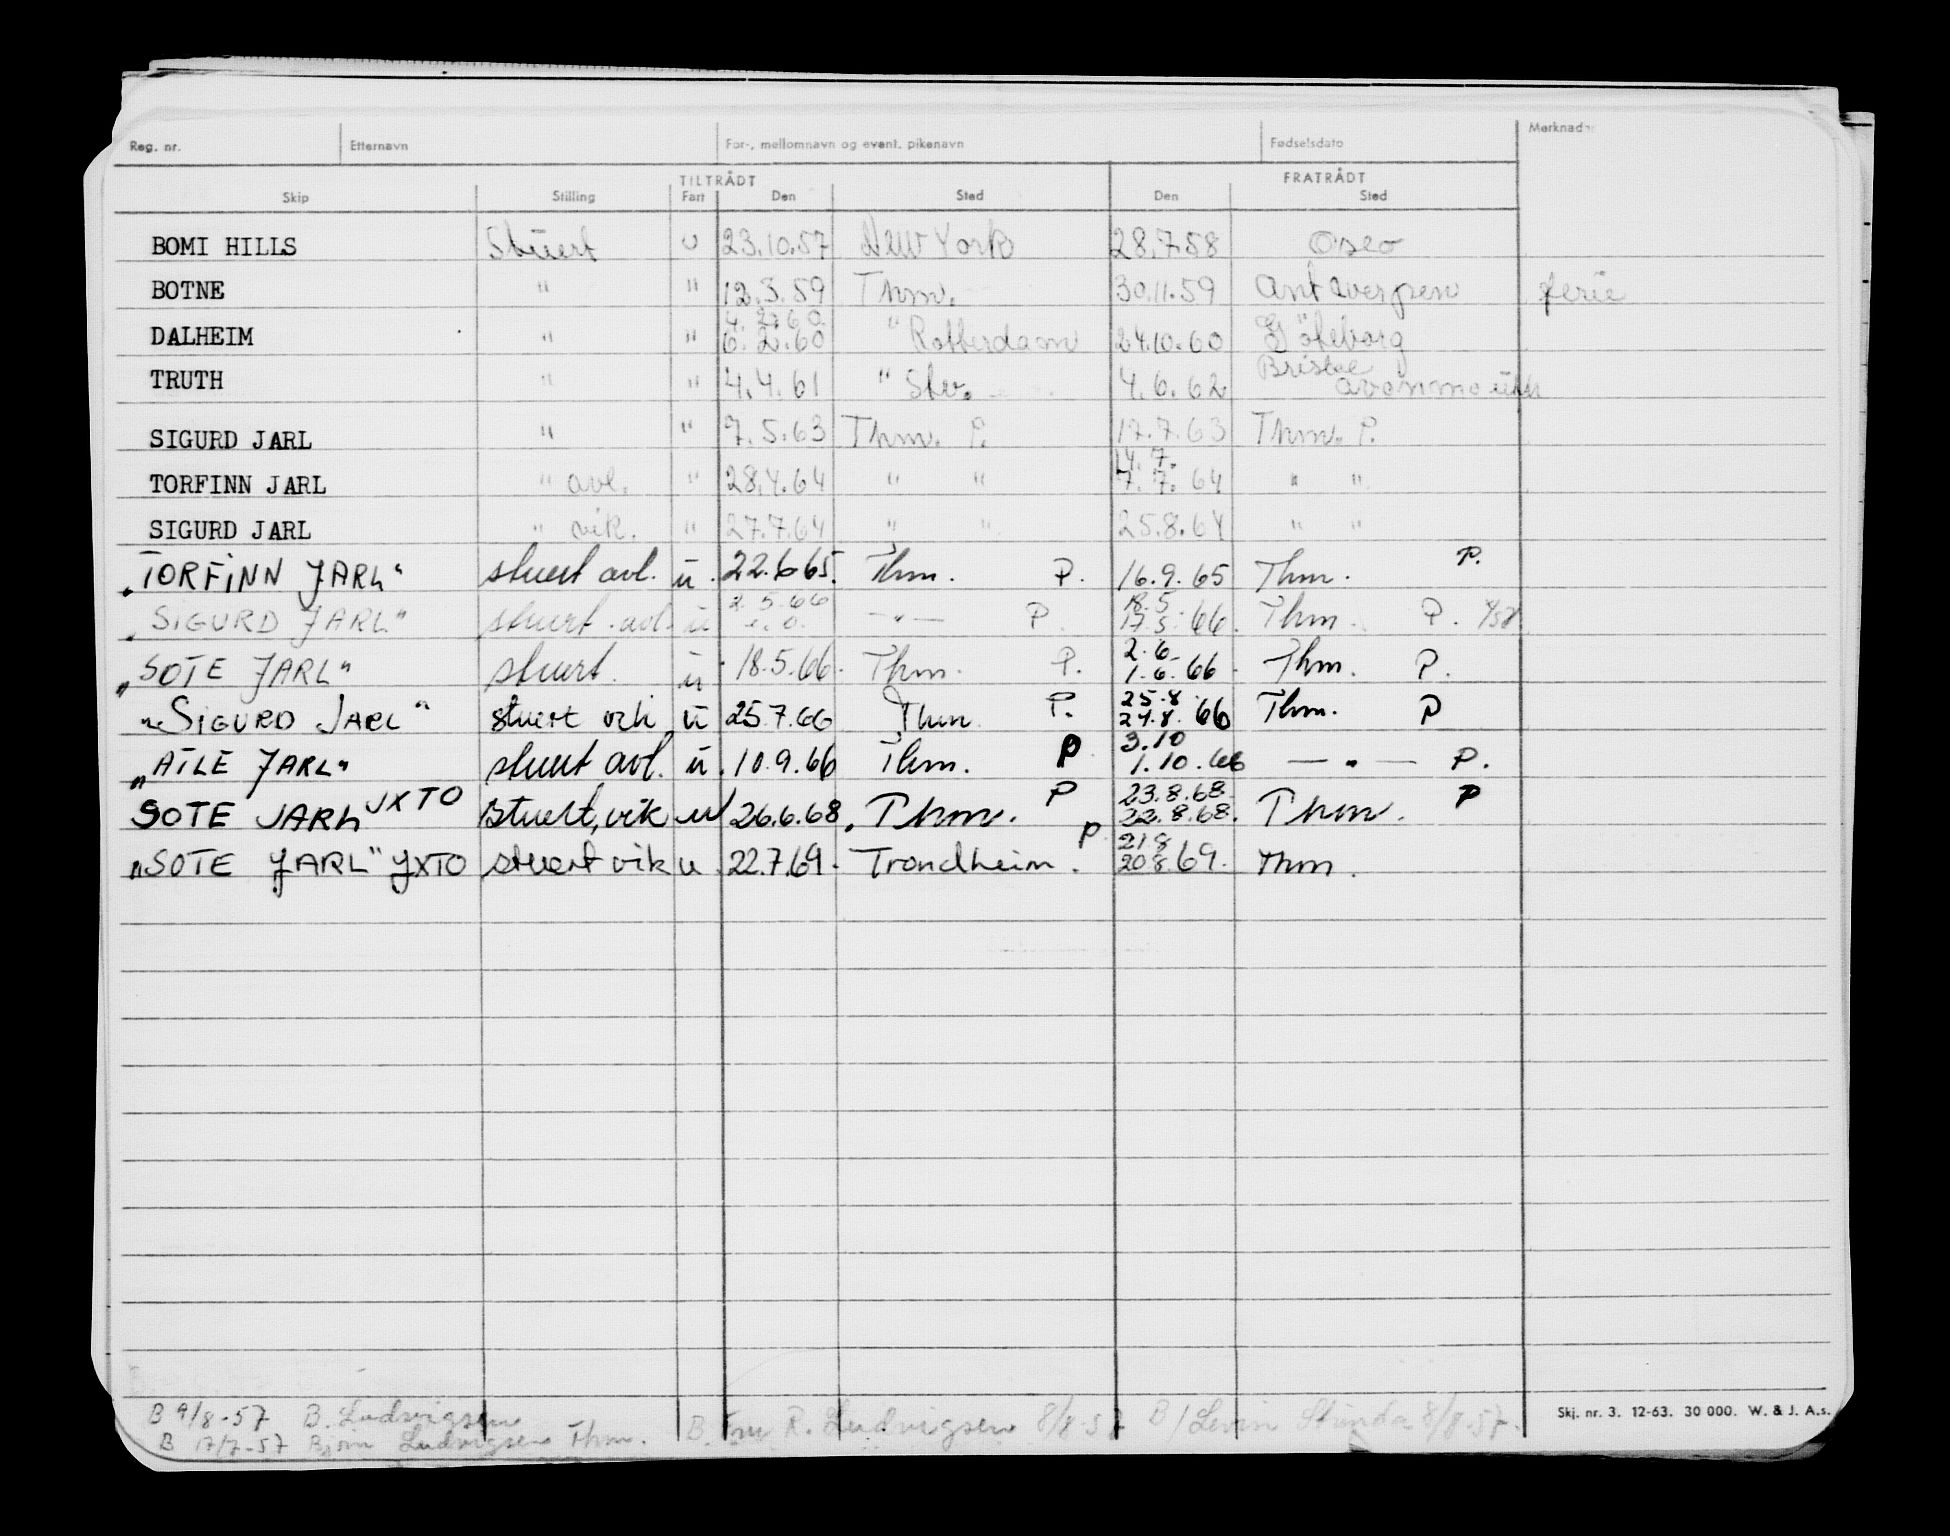 Reg. nr. Etternavn For-, mellomnavn og event. pikenavn Fødselsdato Merknader
TILTRÅDT FRATRÅDT
Skip Stilling Fart Den Sted Den Sted
BOMI HILLS Stuert u 23.10.57 New York 28.7.58 Oslo
BOTNE " " 12.3.59 Thm. 30.11.59 Antwerpen ferie
4. 2. 60.
DALHEIM " " 6.2.60 " Rotterdam 24.10.60 Göteborg
Bristol
TRUTH " " 4.4.61 " Stv. 4.6.62 Avonmouth
SIGURD JARL " " 7.5.63 Thm. P. 17.7.63 Thm. P.
14. 7.
TORFINN JARL " avl. " 28.4.64 " " 7.7.64 " "
SIGURD JARL " vik. " 27.7.64 " " 25.8.64 " "
„TORFINN JARL" stuert avl. u. 22.6 65. Thm. P. 16.9.65 Thm. P.
2.5.66 18.5
„SIGURD JARL" stuert. avl. u —"— P. 17.5.66. Thm. P.
2.6
„SOTE JARL" stuert. u 18.5.66. Thm. P. 1.6.66 Thm. P.
25.8
„SIGURD JARL" stuert vik u 25.7.66 Thm. P. 24.8.66 Thm. P
3.10
„ATLE JARL" stuert avl. u. 10.9.66 Thm. P 1.10.66 —"— P.
23.8.68
SOTE JARL JXTO stuert, vik u 26.6.68. Thm. P 22.8.68. Thm. P
21.8
„SOTE JARL" JXTO stuert vik u 22.7.69. Trondheim. P. 20.8.69. Thm.
B 9/8-57 B. Ludvigsen B. Fru R. Ludvigsen 8/8-57 B / Levin 8/8-57.
B 17/7-57 Bjørn Ludvigsen Thm.
Skj. nr. 3. 12-63. 30 000. W. & J. A.s.